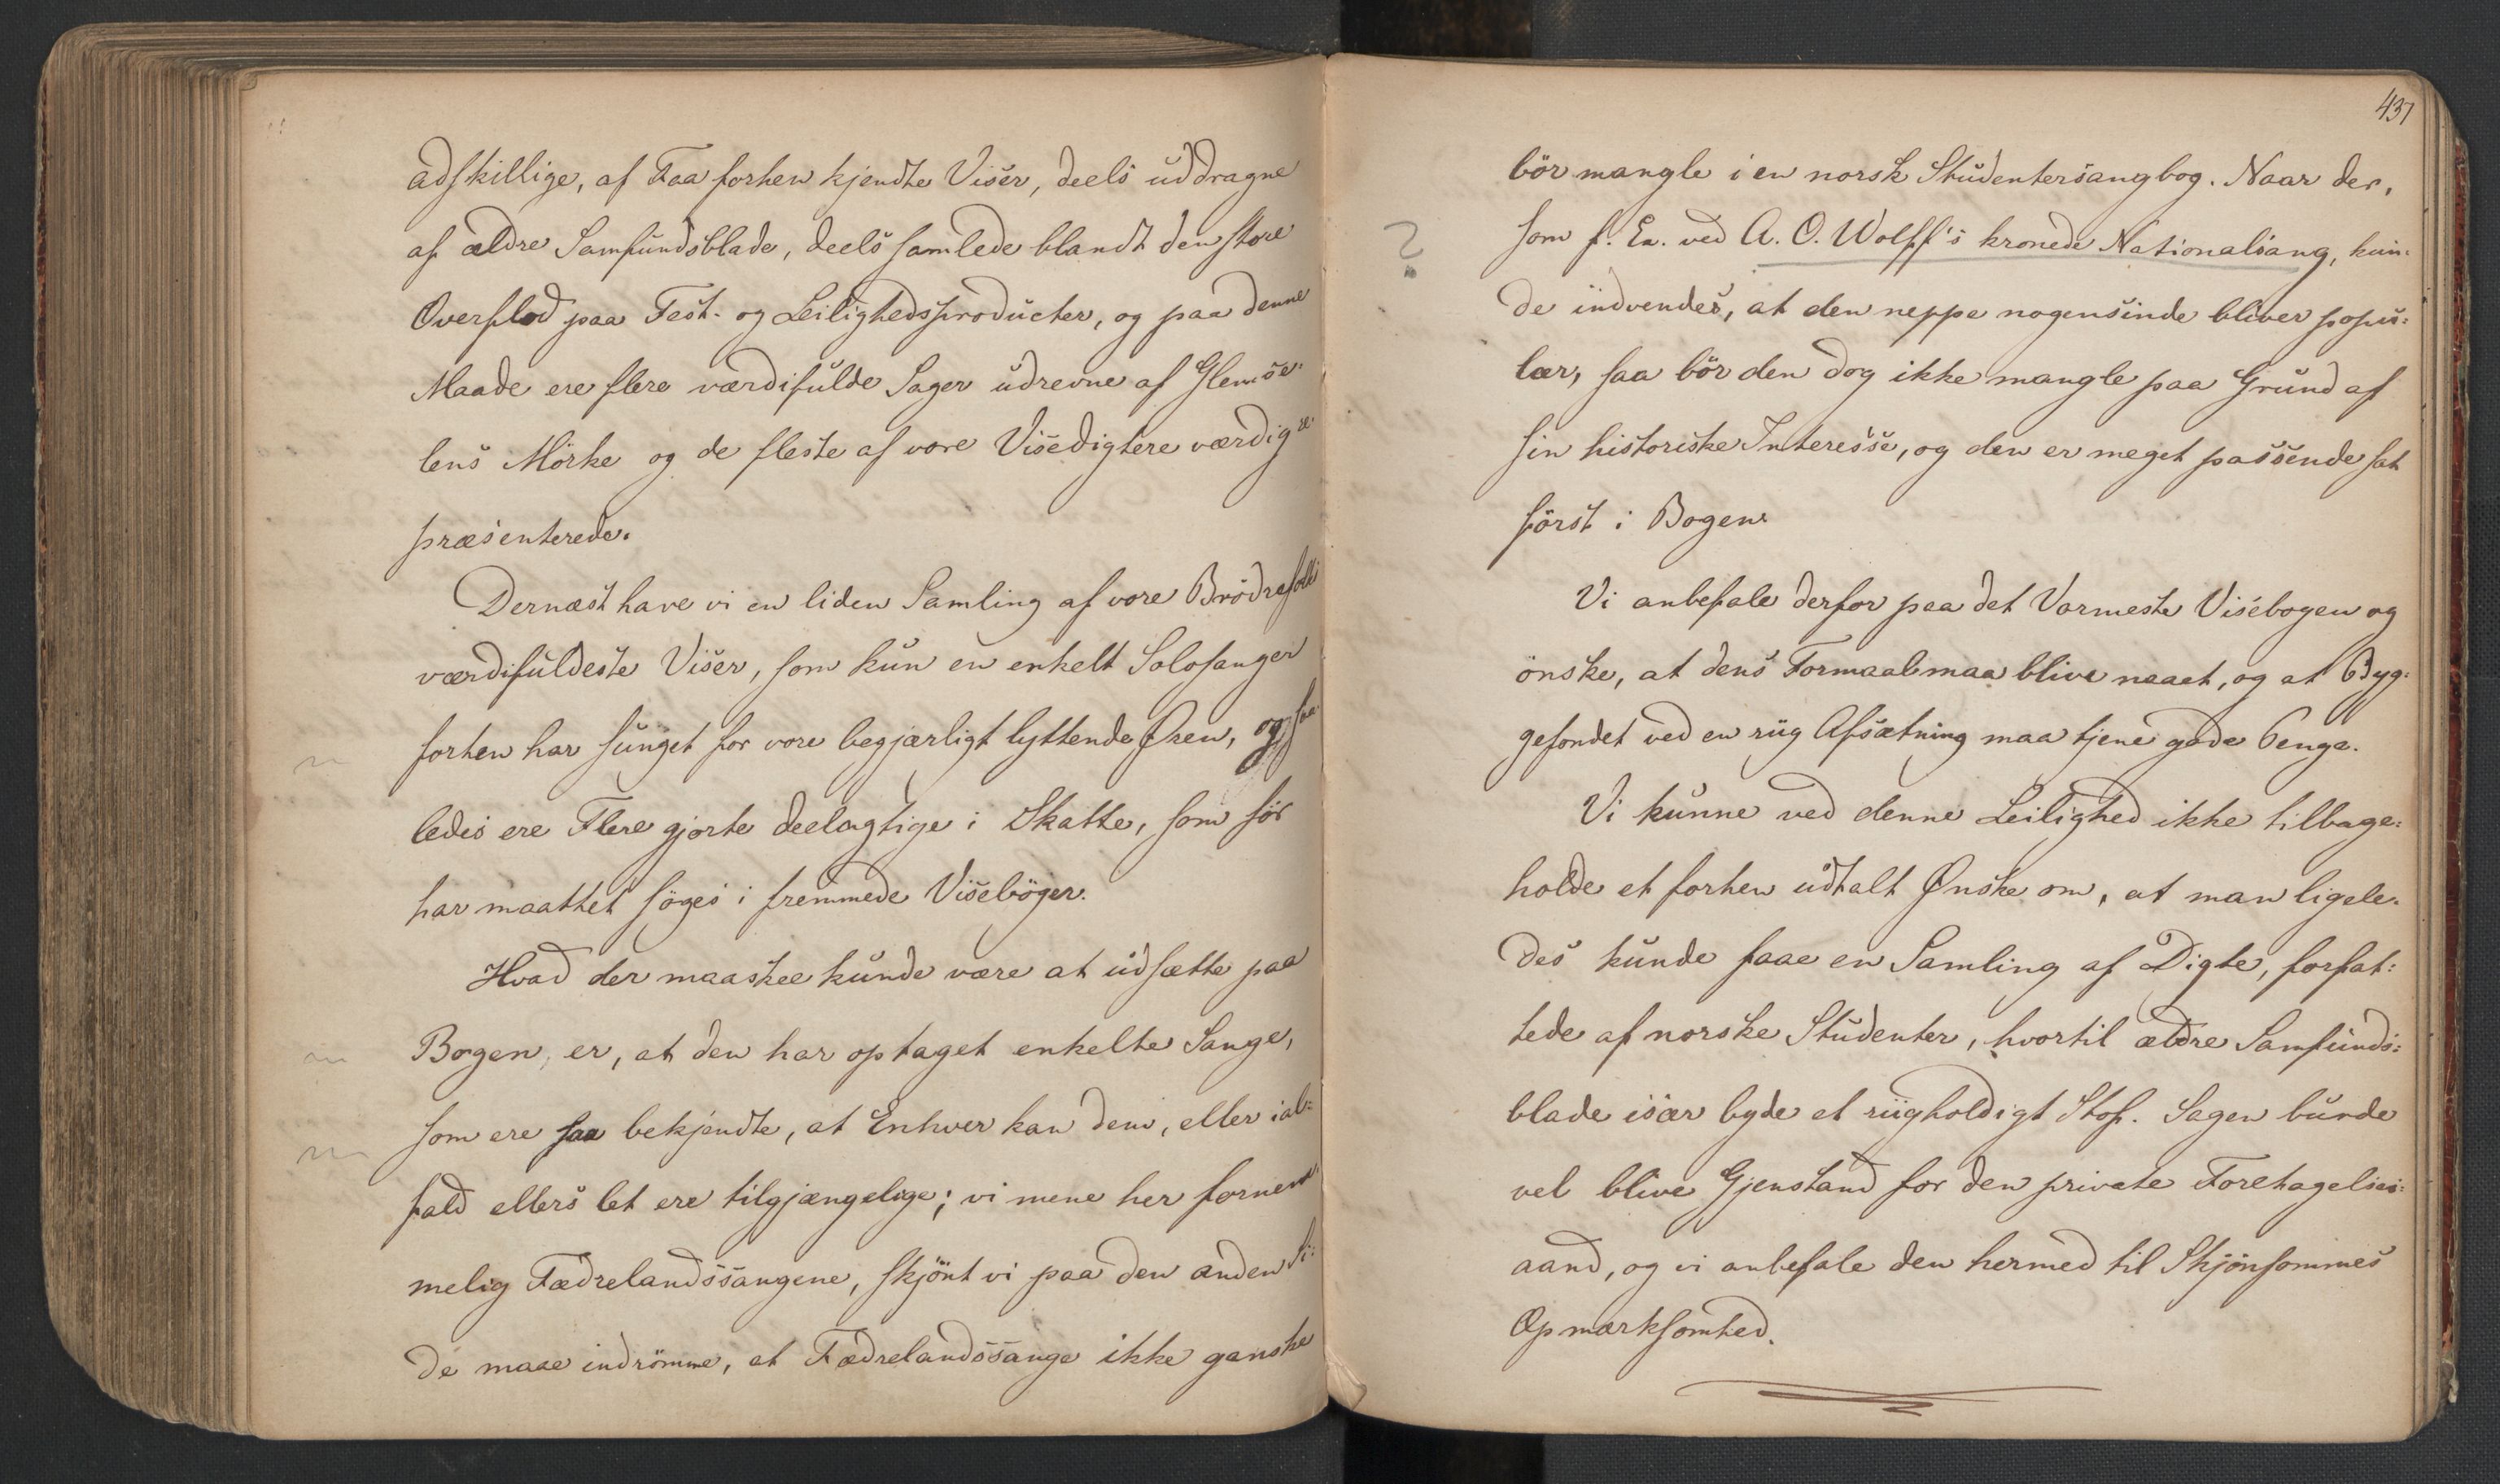 adskillige, af Faa forhen kjendte Viser, deels uddragne
af ældre Samfundsblade, deels samlede blandt den store
Overflod paa Fest- og Leilighedsproducter, og paa denne
Maade ere flere værdifulde Sager udrevne af Glemse-
lens Mörke og de fleste af vore Visedigtere værdig re-
præsenterede.
Dernæst have vi en liden Samling af vore Brödrefolks
værdifuldeste Viser, som kun en enkelt Solosanger
forhen har sunget for vore begjærligt lyttende Øren, og saa-
ledes ere Flere gjorte deelagtige i Skatte, som för
har maattet söges i fremmede Viseböger.
Hvad der maaskee kunde være at udsætte paa
Bogen, er, at den har optaget enkelte Sange,
som ere saa bekjendte, at Enhver kan dem, eller ial-
fald ellers let ere tilgjængelige; vi mene her fornem-
melig Fædrelandssangene, skjönt vi paa den anden Si-
de maae indrömme, at Fædrelandssange ikke ganske
437
bör mangle i en norsk Studentersangbog. Naar der,
?
som f. Ex. ved A. O. Wolff's kronede Nationalsang, kun-
de indvendes, at den neppe nogensinde bliver popu-
lær, saa bör den dog ikke mangle paa Grund af
sin historiske Interesse, og den er meget passende sat
först i Bogen.
Vi anbefale derfor paa det Varmeste Visebogen og
önske, at dens Formaal maa blive naaet, og at Byg-
gefondet ved en riig Afsætning maa tjene gode Penge.
Vi kunne ved denne Leilighed ikke tilbage-
holde et forhen udtalt Ønske om, at man ligele-
des kunde faae en Samling af Digte, forfat-
tede af norske Studenter, hvortil ældre Samfunds-
blade især byde et riigholdigt Stof. Sagen burde
vel blive Gjenstand for den private Foretagelses-
aand, og vi anbefale den hermed til Skjönsommes
Opmærksomhed.